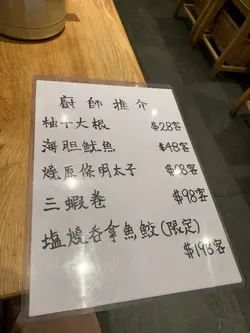 廚師推介
柚子大根 $28客
海胆魷魚 $48客
燒原條明太子 $68客
三蝦卷 $98客
塩燒吞拿魚鮫(限定)
$198客